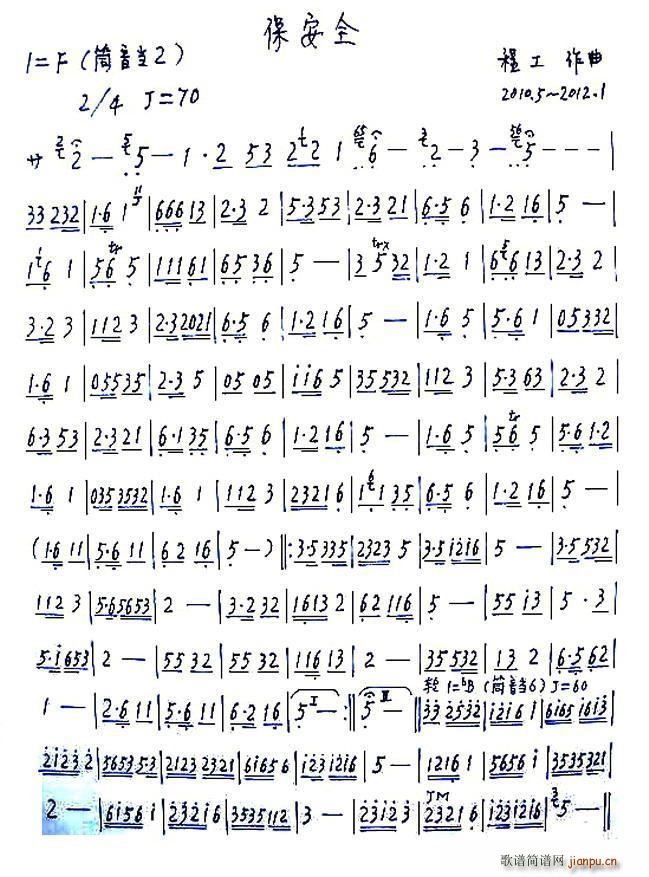 保安全
1=F (筒音当2)
程工 作曲
2/4 J=70
2010.5~2012.1
サ 2 — 5 — 1 · 2 53 2 2 1 6 — 2 — 3 — 5 — — — |
33 232 | 1·6 1 | 666 13 | 2·3 2 | 5·3 53 | 2·3 21 | 6·5 6 | 1·2 16 | 5 — |
1 6 1 | 56 5 | 111 61 | 65 36 | 5 — | 3 5 32 | 1·2 1 | 6 6 13 | 2·3 2 |
3·2 3 | 112 3 | 2·32021 | 6·5 6 | 1·2 16 | 5 — | 1·6 5 | 5·6 1 | 05332 |
1·6 1 | 05535 | 2·3 5 | 05 05 | ii6 5 | 35532 | 112 3 | 5·3 63 | 2·3 2 |
6·3 53 | 2·3 21 | 6·1 35 | 6·5 6 | 1·2 16 | 5 — | 1·6 5 | 56 5 | 5·6 1·2 |
1·6 1 | 035 3532 | 1·6 1 | 112 3 | 2321 6 | 1 1 35 | 6·5 6 | 1·2 16 | 5 — |
(1·6 11 | 5·6 11 | 6 2 16 | 5 —) ‖: 3·5335 | 2323 5 | 3·5 i2i6 | 5 — | 3·5 532 |
112 3 | 5·65653 | 2 — | 3·2 32 | 1613 2 | 62 116 | 5 — | 55 i3 | 5 · 3 |
5·i653 | 2 — | 55 32 | 55 32 | 11613 | 2 — | 35532 | 13 2 | 6·5 62 |
轮 1=bB (筒音当6) J=60
1 — | 2·6 11 | 5·6 11 | 6·2 16 | 5 — :‖ 5 — ‖ 33 2532 | i2i6 1 | 6i65 i6i3 |
2i23 2 | 5653 53 | 2123 2321 | 6i65 6 | i23 i2i6 | 5 — | 1216 1 | 5656 i | 3535321 |
2 — | 6i56 1 | 232i 6 | 3535112 | 3 — | 23i23 | 2321 6 | i23i2i6 | 5 — ‖
歌谱简谱网
jianpu.cn